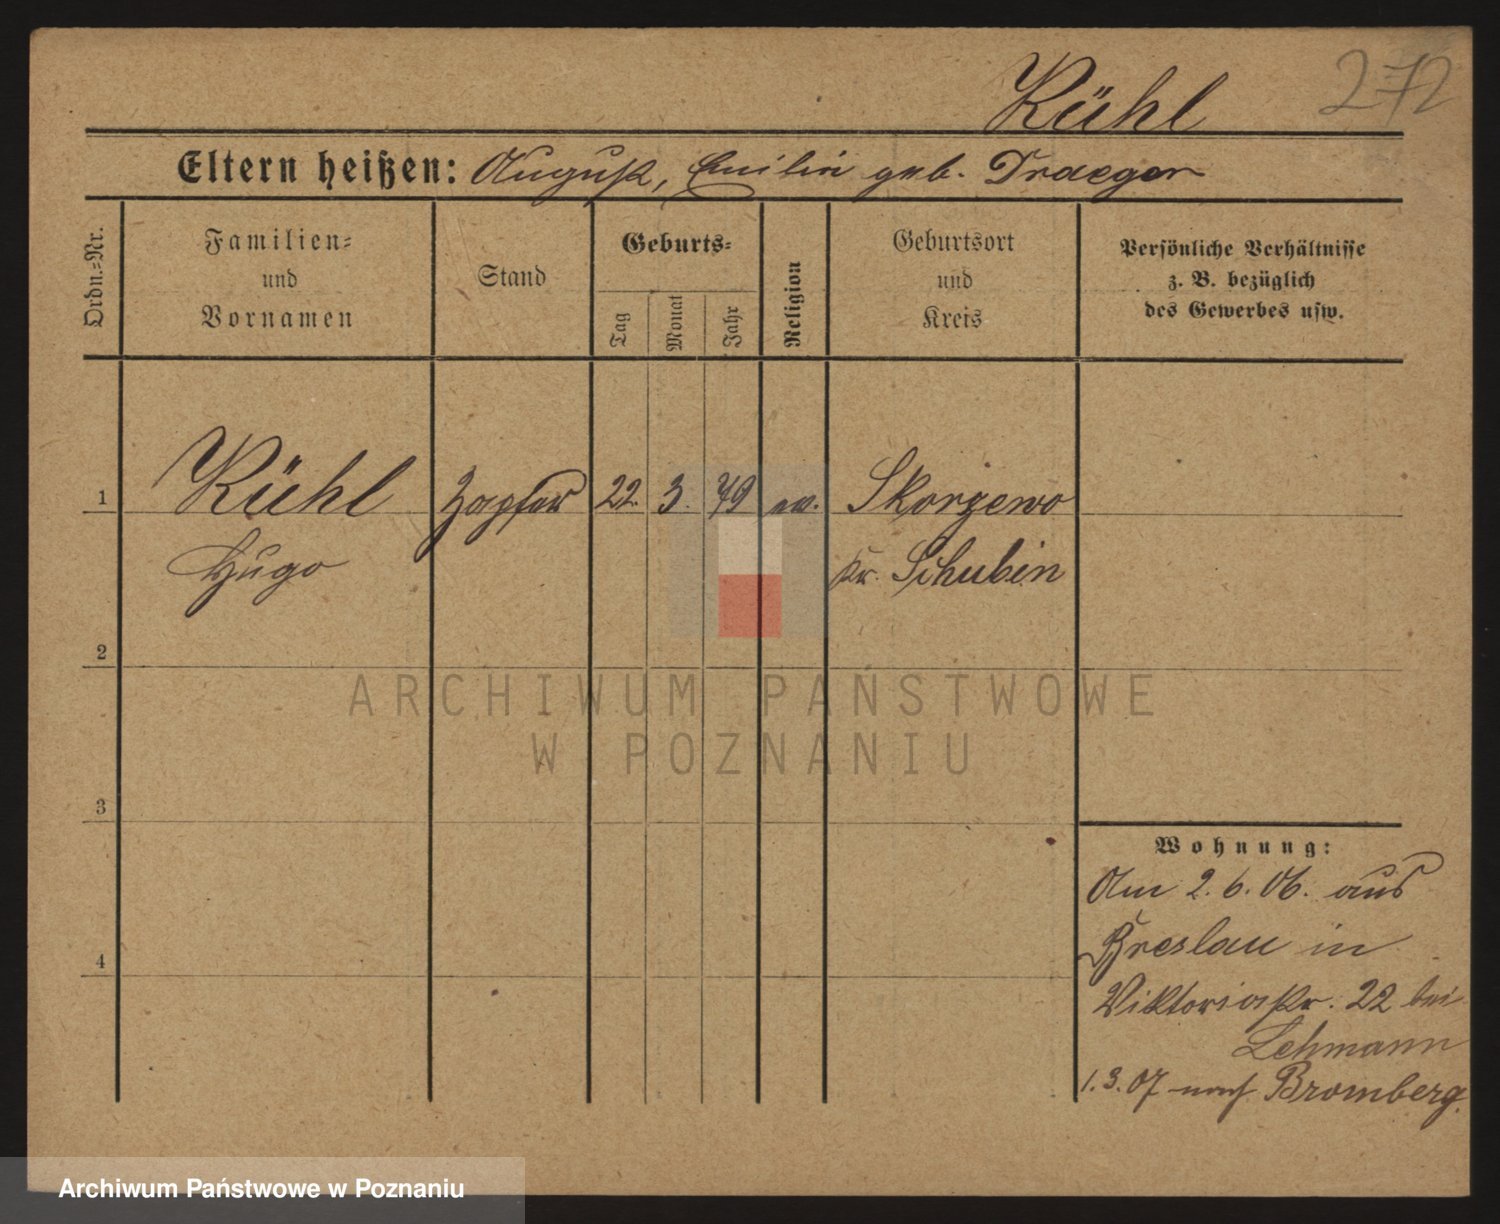 272
Kühl
Eltern heißen: August, Emilie geb. Draeger
Ordn.-Nr.
Familien-
und
Vornamen
Stand
Geburts-
Tag
Monat
Jahr
Religion
Geburtsort
und
Kreis
Persönliche Verhältnisse
z. B. bezüglich
des Gewerbes usw.
1 Kühl Zapfer 22. 3. 79 ev. Skorzewo
Hugo Kr. Schubin
2
ARCHIWUM PAŃSTWOWE
W POZNANIU
3
Wohnung:
Am 2.6.06. aus
Breslau in
4
Viktoriastr. 22 bei
Lehmann
1.3.07 nach Bromberg.
Archiwum Państwowe w Poznaniu